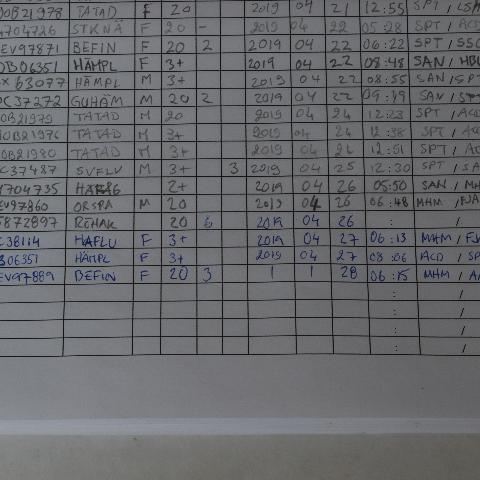 00B21978 TATAD F 20 2019 04 21 12:55 SPT /
4704726 STKNÄ F 20 - 2019 04 22 05:28 SPT / ACD
EV97871 BEFIN F 20 2 2019 04 22 06:22 SPT / SSC
DB06351 HÄMPL F 3+ 2019 04 22 08:48 SAN / HBL
X 63077 HÄMPL M 3+ 2019 04 22 08:55 SAN / SPT
C37272 GUHÄM M 20 2 2019 04 22 09:49 SAN /
0B21979 TATAD M 20 2019 04 24 12:23 SPT / ACD
0B21976 TATAD M 3+ 2019 04 24 12:38 SPT / AC
0B21980 TATAD M 3+ 2019 04 24 12:51 SPT / AC
C37487 SVFLV M 3+ 3 2019 04 25 12:30 SPT / SA
4704735 2+ 2019 04 26 05:50 SAN / MH
EV97860 ORSPA M 20 2019 04 26 06:48 MHM / FJA
5872897 ROHAK 20 2019 04 26 : /
C38114 HAFLU F 3+ 2019 04 27 06:13 MHM / FJ
B06351 HÄMPL F 3+ 2019 04 27 08:06 ACD / SP
EV97889 BEFIN F 20 3 1 1 28 06:15 MHM / A
: /
: /
: /
: /